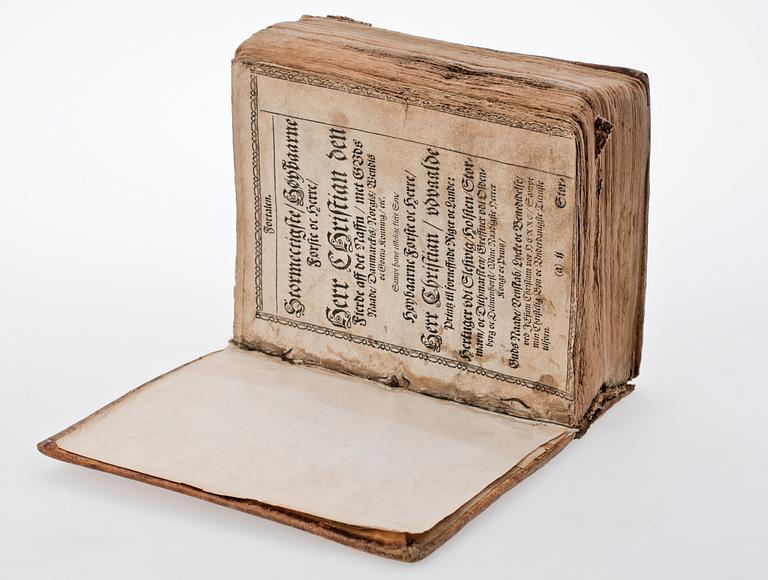 Fortalen.
Stormectigste/ Høybaarne
Første oc Herre/
Herr CHristian den
Fierde aff det Naffn met GVds
Naade/ Danmarckis/ Norgis/ Wendis
oc Gottis Konning/ etc.
Sampt hans elskelige kiere Søn/
Høybaarne Første oc Herre/
Herr Christian/ vduaalde
Printz til forneffnde Riger oc Lande:
Hertuger vdi Sleßwig/ Holsten/ Stor-
marn/ oc Dithmarsken/ Greffuer vdi Olden-
borg oc Delmenhorst/ Mine Naadigste Herrer
Konge oc Printz/
Guds Naade/ Venskab/ Lycke oc Benedidelse/
ved JEsum Christum vor HERRE/ Sampt
min Christelig Bøn oc Vnderdanigste Tieniste
tilforn.
(a) ij
Stor-